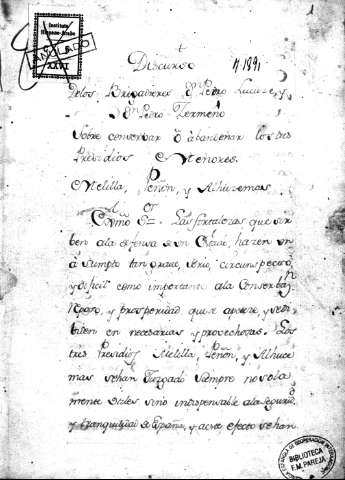 Instituto
Hispano-Arabe
ANULADO
XXVI
Discurso
4 1891
Delos Brigadieres Dn Pedro Lucuze, y
Dn Pedro Zermeño
Sobre conservar ò abandonar los tres
Presidios Menores.
Melilla, Peñon, y Alhuzemas
Las fortalezas que sir
ben ala defensa de un Estado, hazen un
asumpto tan grave, serio, circunspecto,
y dificil como importante ala Conserbaz.n
Reposo, y prosperidad que
en necesarias y provechosas. Los
tres Presidios Melilla, Peñon, y Alhuce
mas sehan Juzgado Siempre no sola
mente utiles sino indispensable ala segurid.d
y tranquilidad de España, y aeste efecto sehan
BIBLIOTECA
F. M. PAREJA